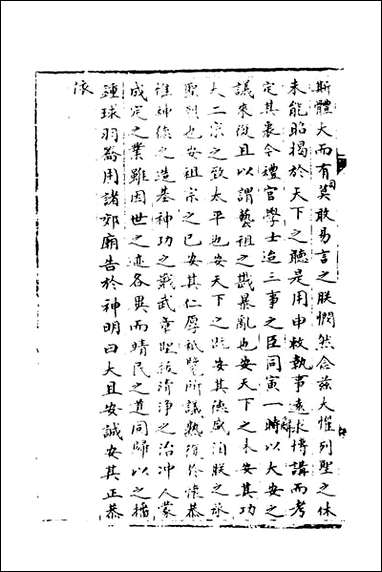 斯體大而有司莫敢易言之朕憫然念茲大懼列聖之休
未能昭揭於天下之聽是用申敕執事遠求博講而考
定其衷今禮官學士迨三事之臣同寅一辭時以大安之
議來復且以謂藝祖之戡暴亂也安天下之未安其功
大二宗之致太平也安天下之既安其德盛洎朕之承
聖烈也安祖宗之已安其仁厚祗覽所議熟復於懷恭
惟神保之造基神功之戢武章聖恢清淨之治沖人蒙
成定之業雖因世之迹各異而靖民之道同歸以之播
鍾球羽籥用諸郊廟告於神明曰大且安誠安其正恭
依